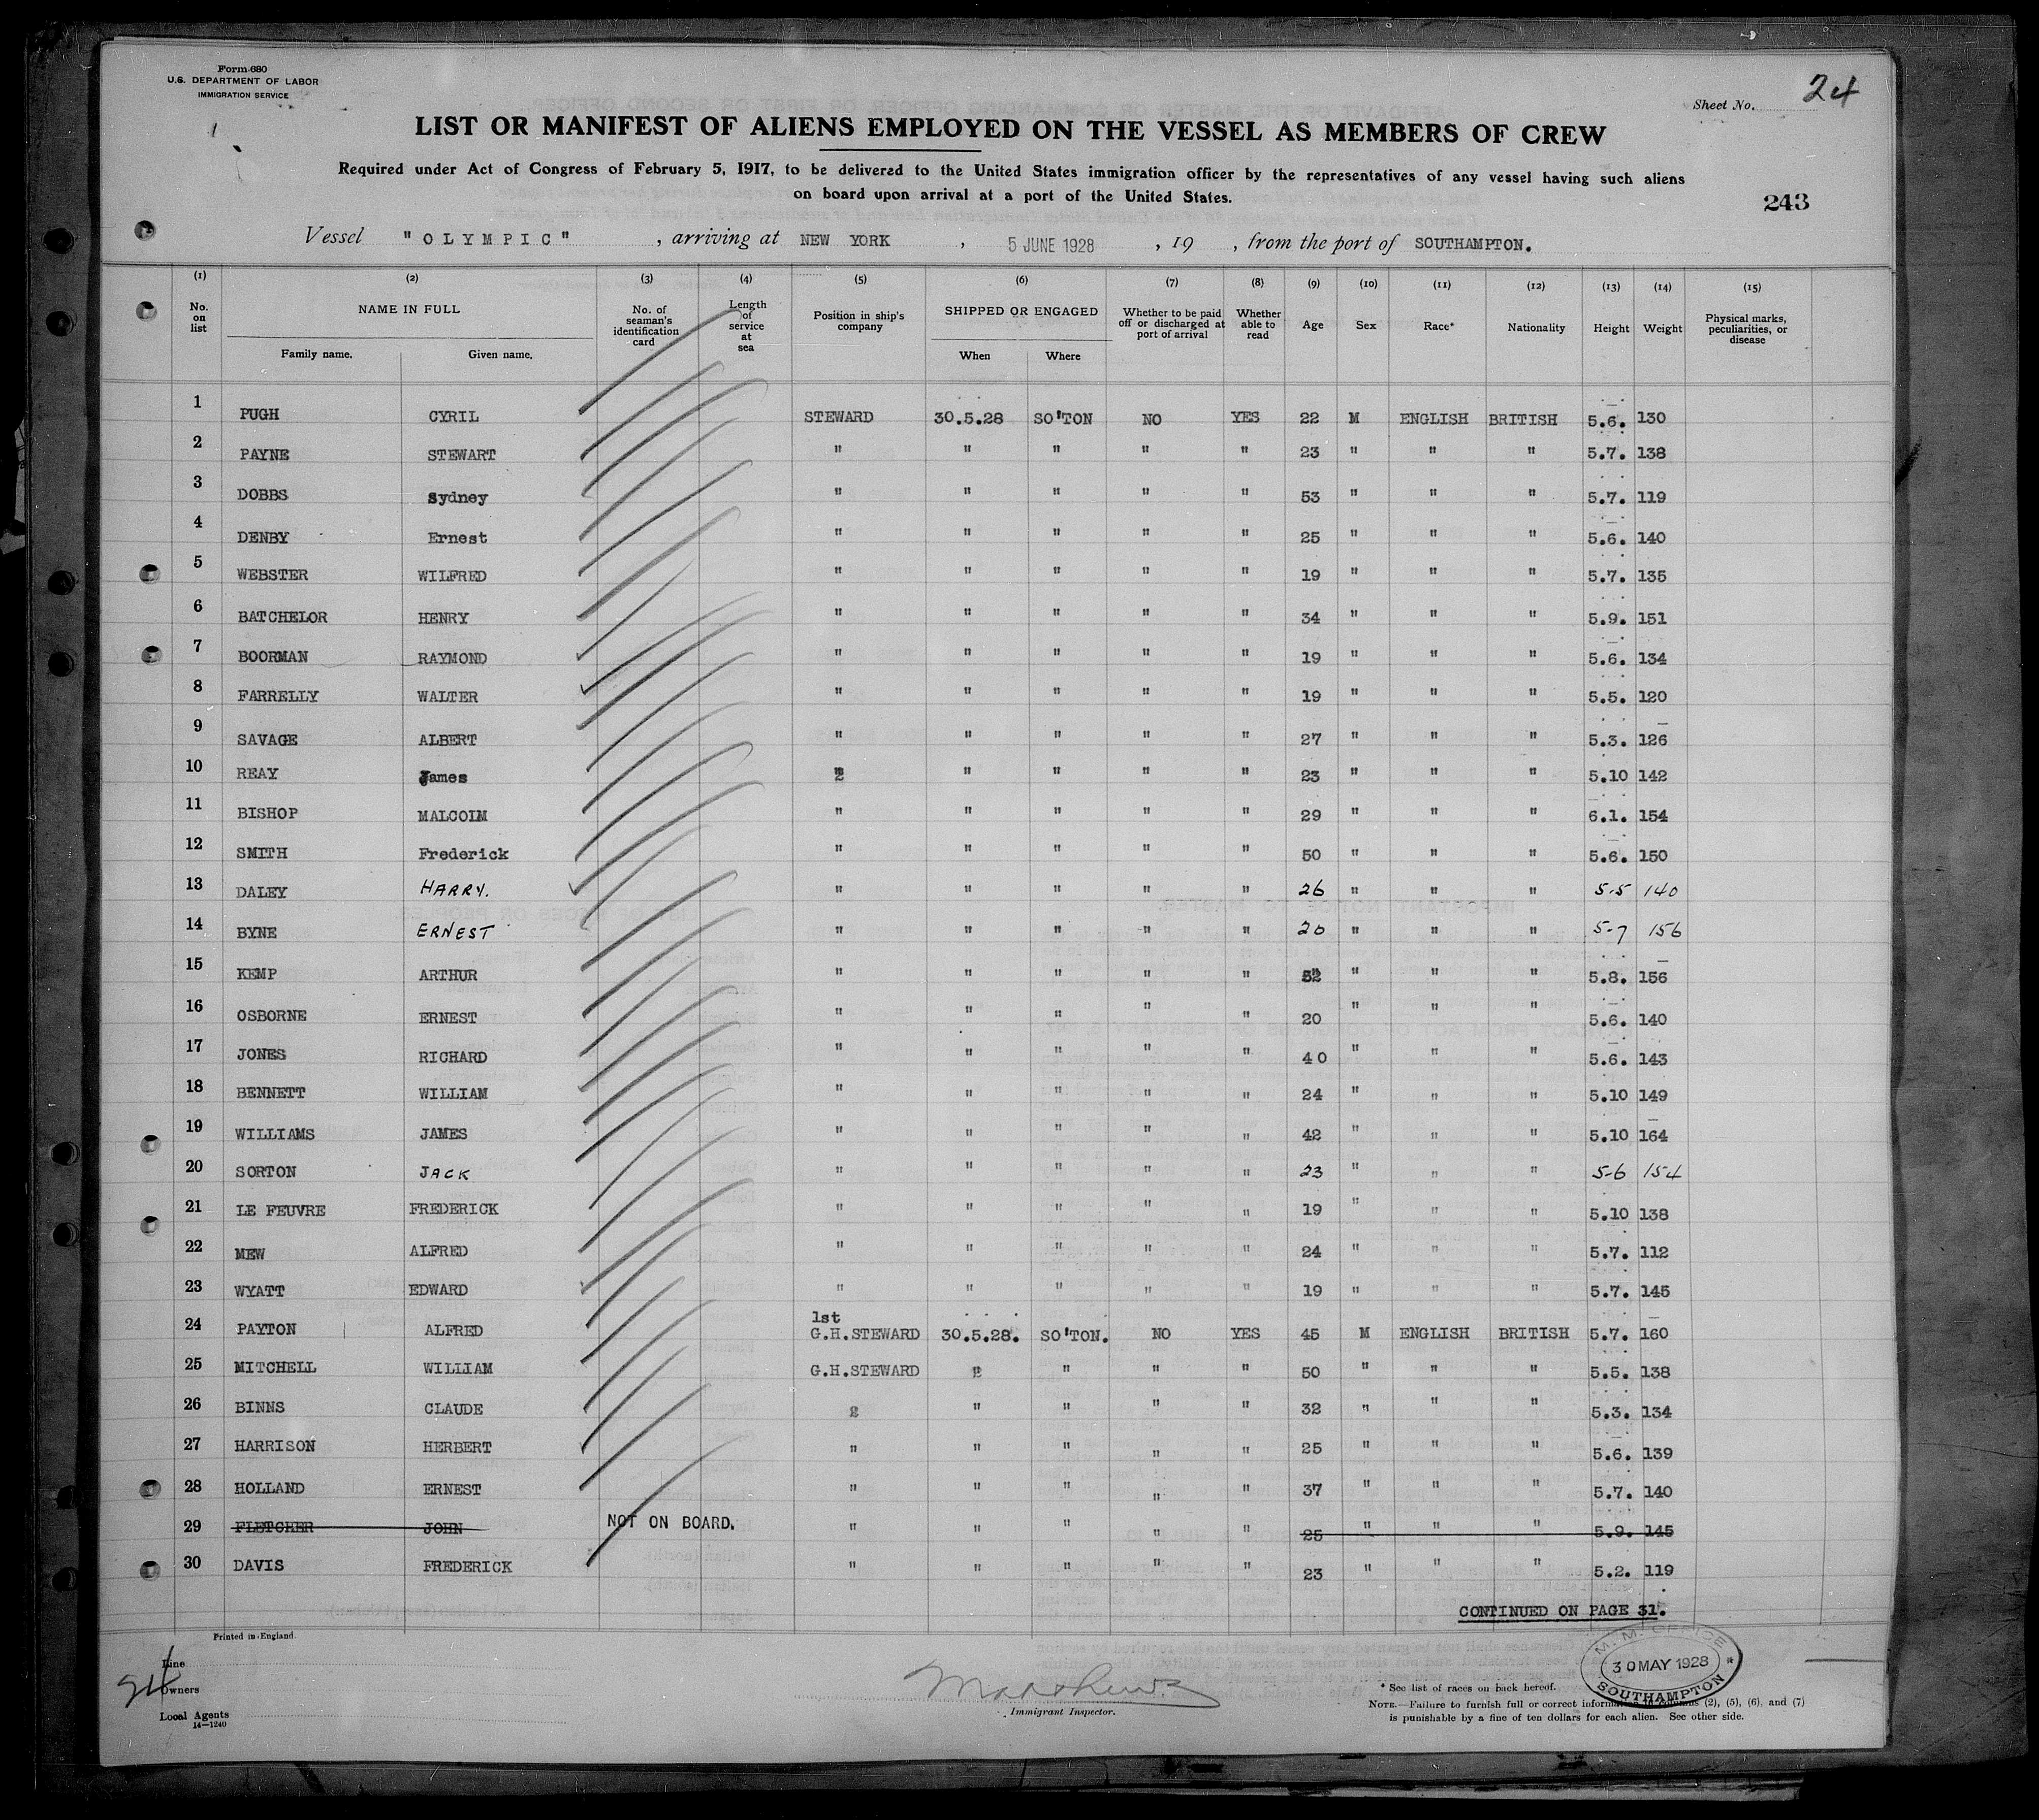 Form 680
U.S. DEPARTMENT OF LABOR
IMMIGRATION SERVICE
Sheet No. 24
LIST OR MANIFEST OF ALIENS EMPLOYED ON THE VESSEL AS MEMBERS OF CREW
Required under Act of Congress of February 5, 1917, to be delivered to the United States immigration officer by the representatives of any vessel having such aliens
on board upon arrival at a port of the United States.
243
Vessel "OLYMPIC", arriving at NEW YORK, 5 JUNE 1928, 19 , from the port of SOUTHAMPTON.
(1) (2) (3) (4) (5) (6) (7) (8) (9) (10) (11) (12) (13) (14) (15)
No. on list NAME IN FULL No. of seaman's identification card Length of service at sea Position in ship's company SHIPPED OR ENGAGED Whether to be paid off or discharged at port of arrival Whether able to read Age Sex Race* Nationality Height Weight Physical marks, peculiarities, or disease
Family name. Given name. When Where
1 PUGH CYRIL STEWARD 30.5.28 SO'TON NO YES 22 M ENGLISH BRITISH 5.6. 130
2 PAYNE STEWART " " " " " 23 " " " 5.7. 138
3 DOBBS Sydney " " " " " 53 " " " 5.7. 119
4 DENBY Ernest " " " " " 25 " " " 5.6. 140
5 WEBSTER WILFRED " " " " " 19 " " " 5.7. 135
6 BATCHELOR HENRY " " " " " 34 " " " 5.9. 151
7 BOORMAN RAYMOND " " " " " 19 " " " 5.6. 134
8 FARRELLY WALTER " " " " " 19 " " " 5.5. 120
9 SAVAGE ALBERT " " " " " 27 " " " 5.3. 126
10 REAY James " " " " " 23 " " " 5.10 142
11 BISHOP MALCOLM " " " " " 29 " " " 6.1. 154
12 SMITH Frederick " " " " " 50 " " " 5.6. 150
13 DALEY HARRY. " " " " " 26 " " " 5-5 140
14 BYNE ERNEST " " " " " 20 " " " 5-7 156
15 KEMP ARTHUR " " " " " 52 " " " 5.8. 156
16 OSBORNE ERNEST " " " " " 20 " " " 5.6. 140
17 JONES RICHARD " " " " " 40 " " " 5.6. 143
18 BENNETT WILLIAM " " " " " 24 " " " 5.10 149
19 WILLIAMS JAMES " " " " " 42 " " " 5.10 164
20 SORTON JACK " " " " " 23 " " " 5-6 154
21 LE FEUVRE FREDERICK " " " " " 19 " " " 5.10 138
22 MEW ALFRED " " " " " 24 " " " 5.7. 112
23 WYATT EDWARD " " " " " 19 " " " 5.7. 145
24 PAYTON ALFRED 1st G.H.STEWARD 30.5.28. SO'TON. NO YES 45 M ENGLISH BRITISH 5.7. 160
25 MITCHELL WILLIAM G.H.STEWARD " " " " 50 " " " 5.5. 138
26 BINNS CLAUDE " " " " " 32 " " " 5.3. 134
27 HARRISON HERBERT " " " " " 25 " " " 5.6. 139
28 HOLLAND ERNEST " " " " " 37 " " " 5.7. 140
29 FLETCHER JOHN NOT ON BOARD. " " " " " 25 " " " 5.9. 145
30 DAVIS FREDERICK " " " " " 23 " " " 5.2. 119
CONTINUED ON PAGE 31.
Printed in England.
Line
Owners
Local Agents
14—1240
Immigrant Inspector.
30 MAY 1928
SOUTHAMPTON
* See list of races on back hereof.
NOTE.—Failure to furnish full or correct information in columns (2), (5), (6), and (7)
is punishable by a fine of ten dollars for each alien. See other side.